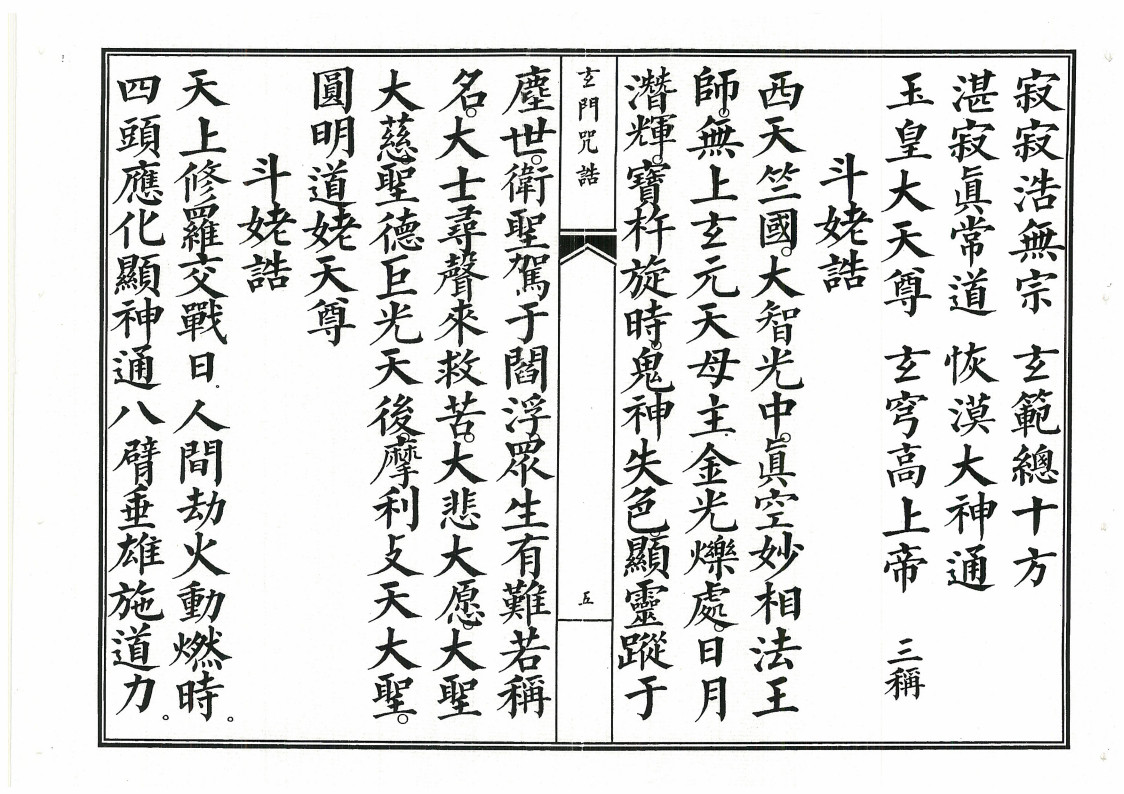 寂寂浩無宗　玄範總十方
湛寂眞常道　恢漠大神通
玉皇大天尊　玄穹高上帝　三稱
斗姥誥
西天竺國。大智光中。眞空妙相法王
師。無上玄元天母主金光爍處。日月
潛輝。寶杵旋時。鬼神失色。顯靈蹤于
玄門咒誥
五
塵世。衛聖駕于閻浮。眾生有難若稱
名。大士尋聲來救苦。大悲大愿。大聖
大慈聖德巨光天後。摩利攴天大聖。
圓明道姥天尊
斗姥誥
天上修羅交戰日.人間劫火動燃時。
四頭應化顯神通八臂垂雄施道力。